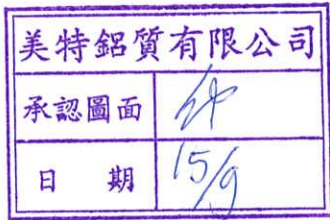 美特鋁質有限公司
承認圖面
日 期 15/9